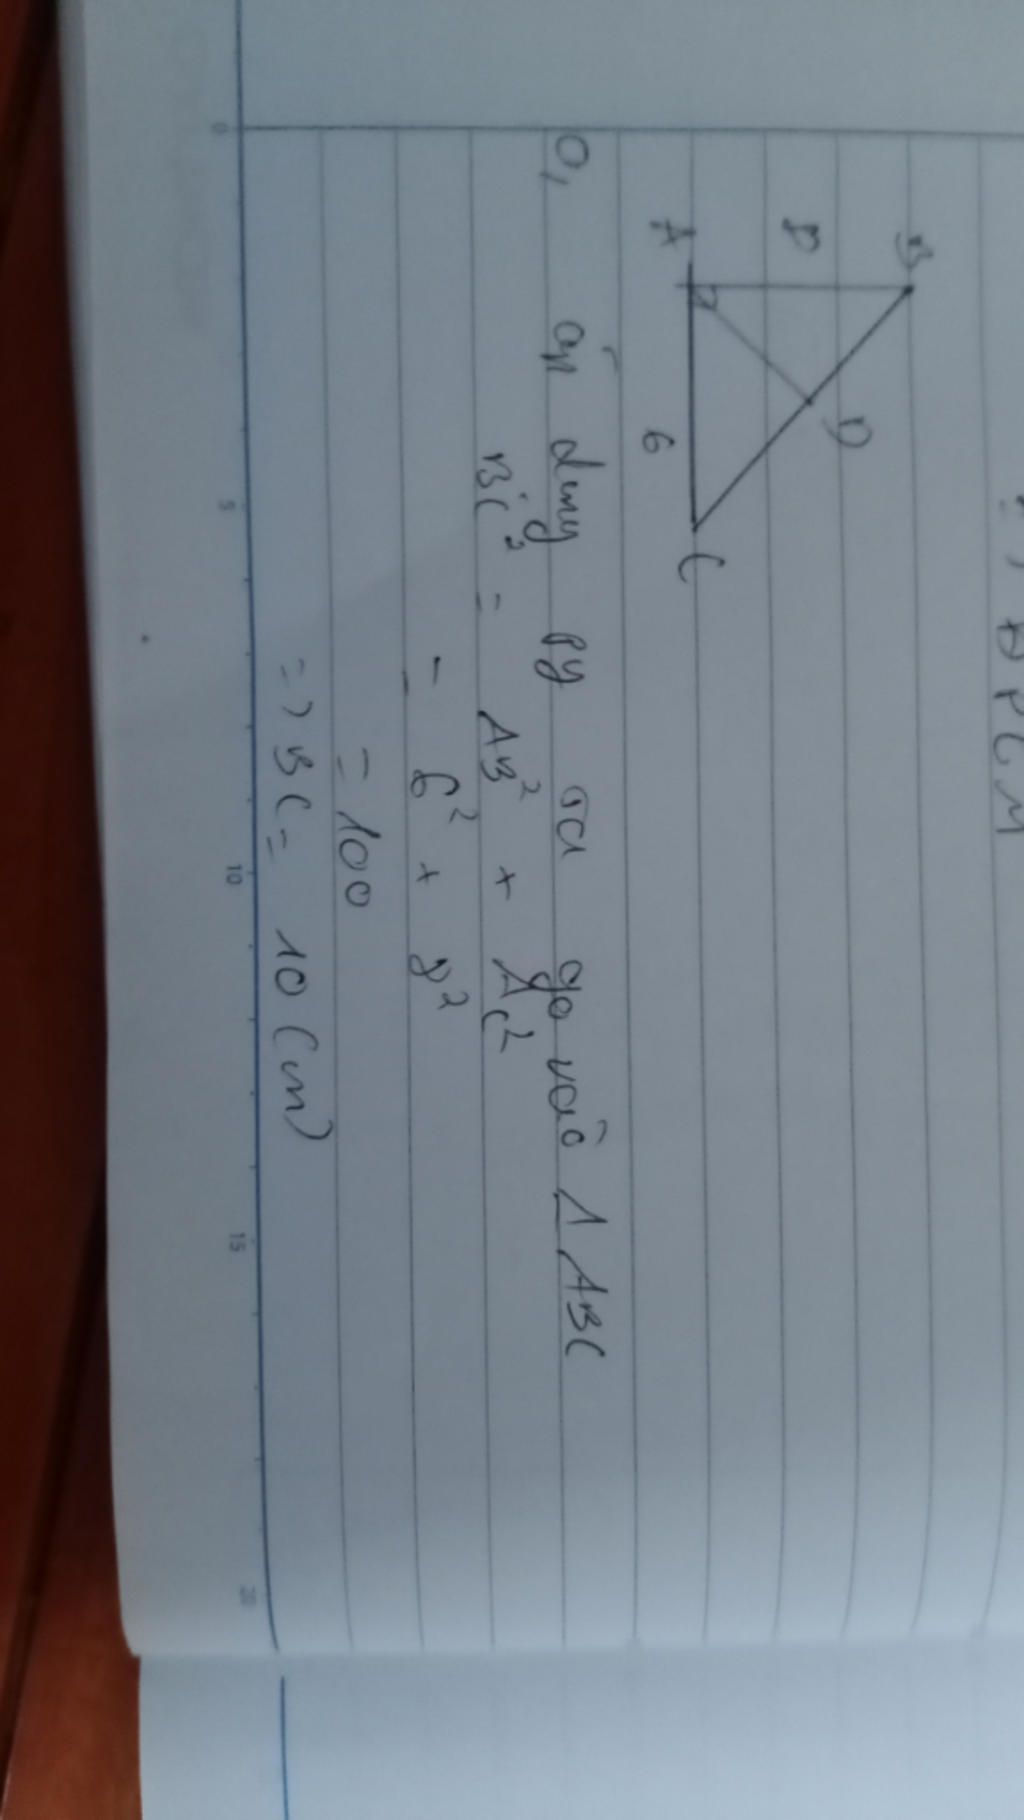 =) ĐPCM
B
8
D
A
6
C
a, áp dụng py ta go vào Δ ABC
BC² = AB² + AC²
= 6² + 8²
= 100
=> BC = 10 (cm)
0 5 10 15 20